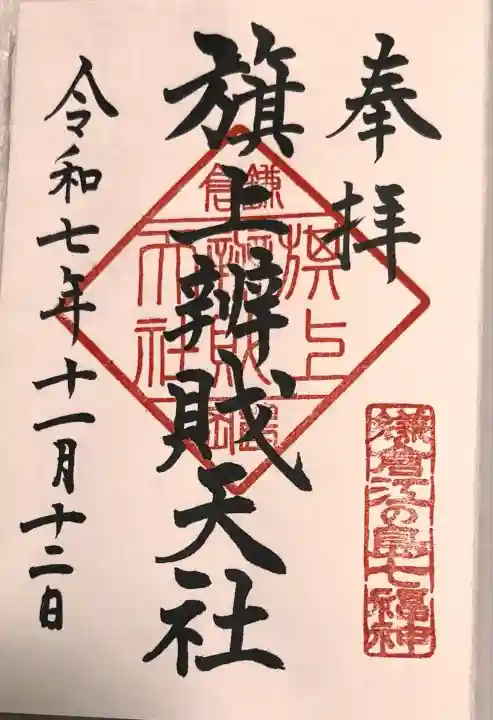 奉拝
旗上辨財天社
令和七年十一月十二日
鎌倉
旗上
辨財
天社
鎌倉江の島七福神